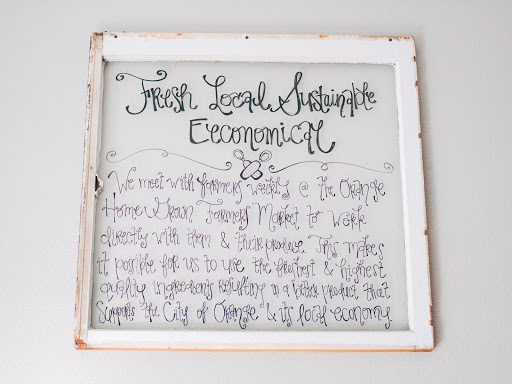 Fresh Local Sustainable
Eeconomical
We meet with farmers weekly @ the Orange
Home Grown Farmers Market to work
directly with them & their produce. This makes
it possible for us to use the freshest & highest
quality ingredients resulting in a better product that
supports the City of Orange & its local economy.